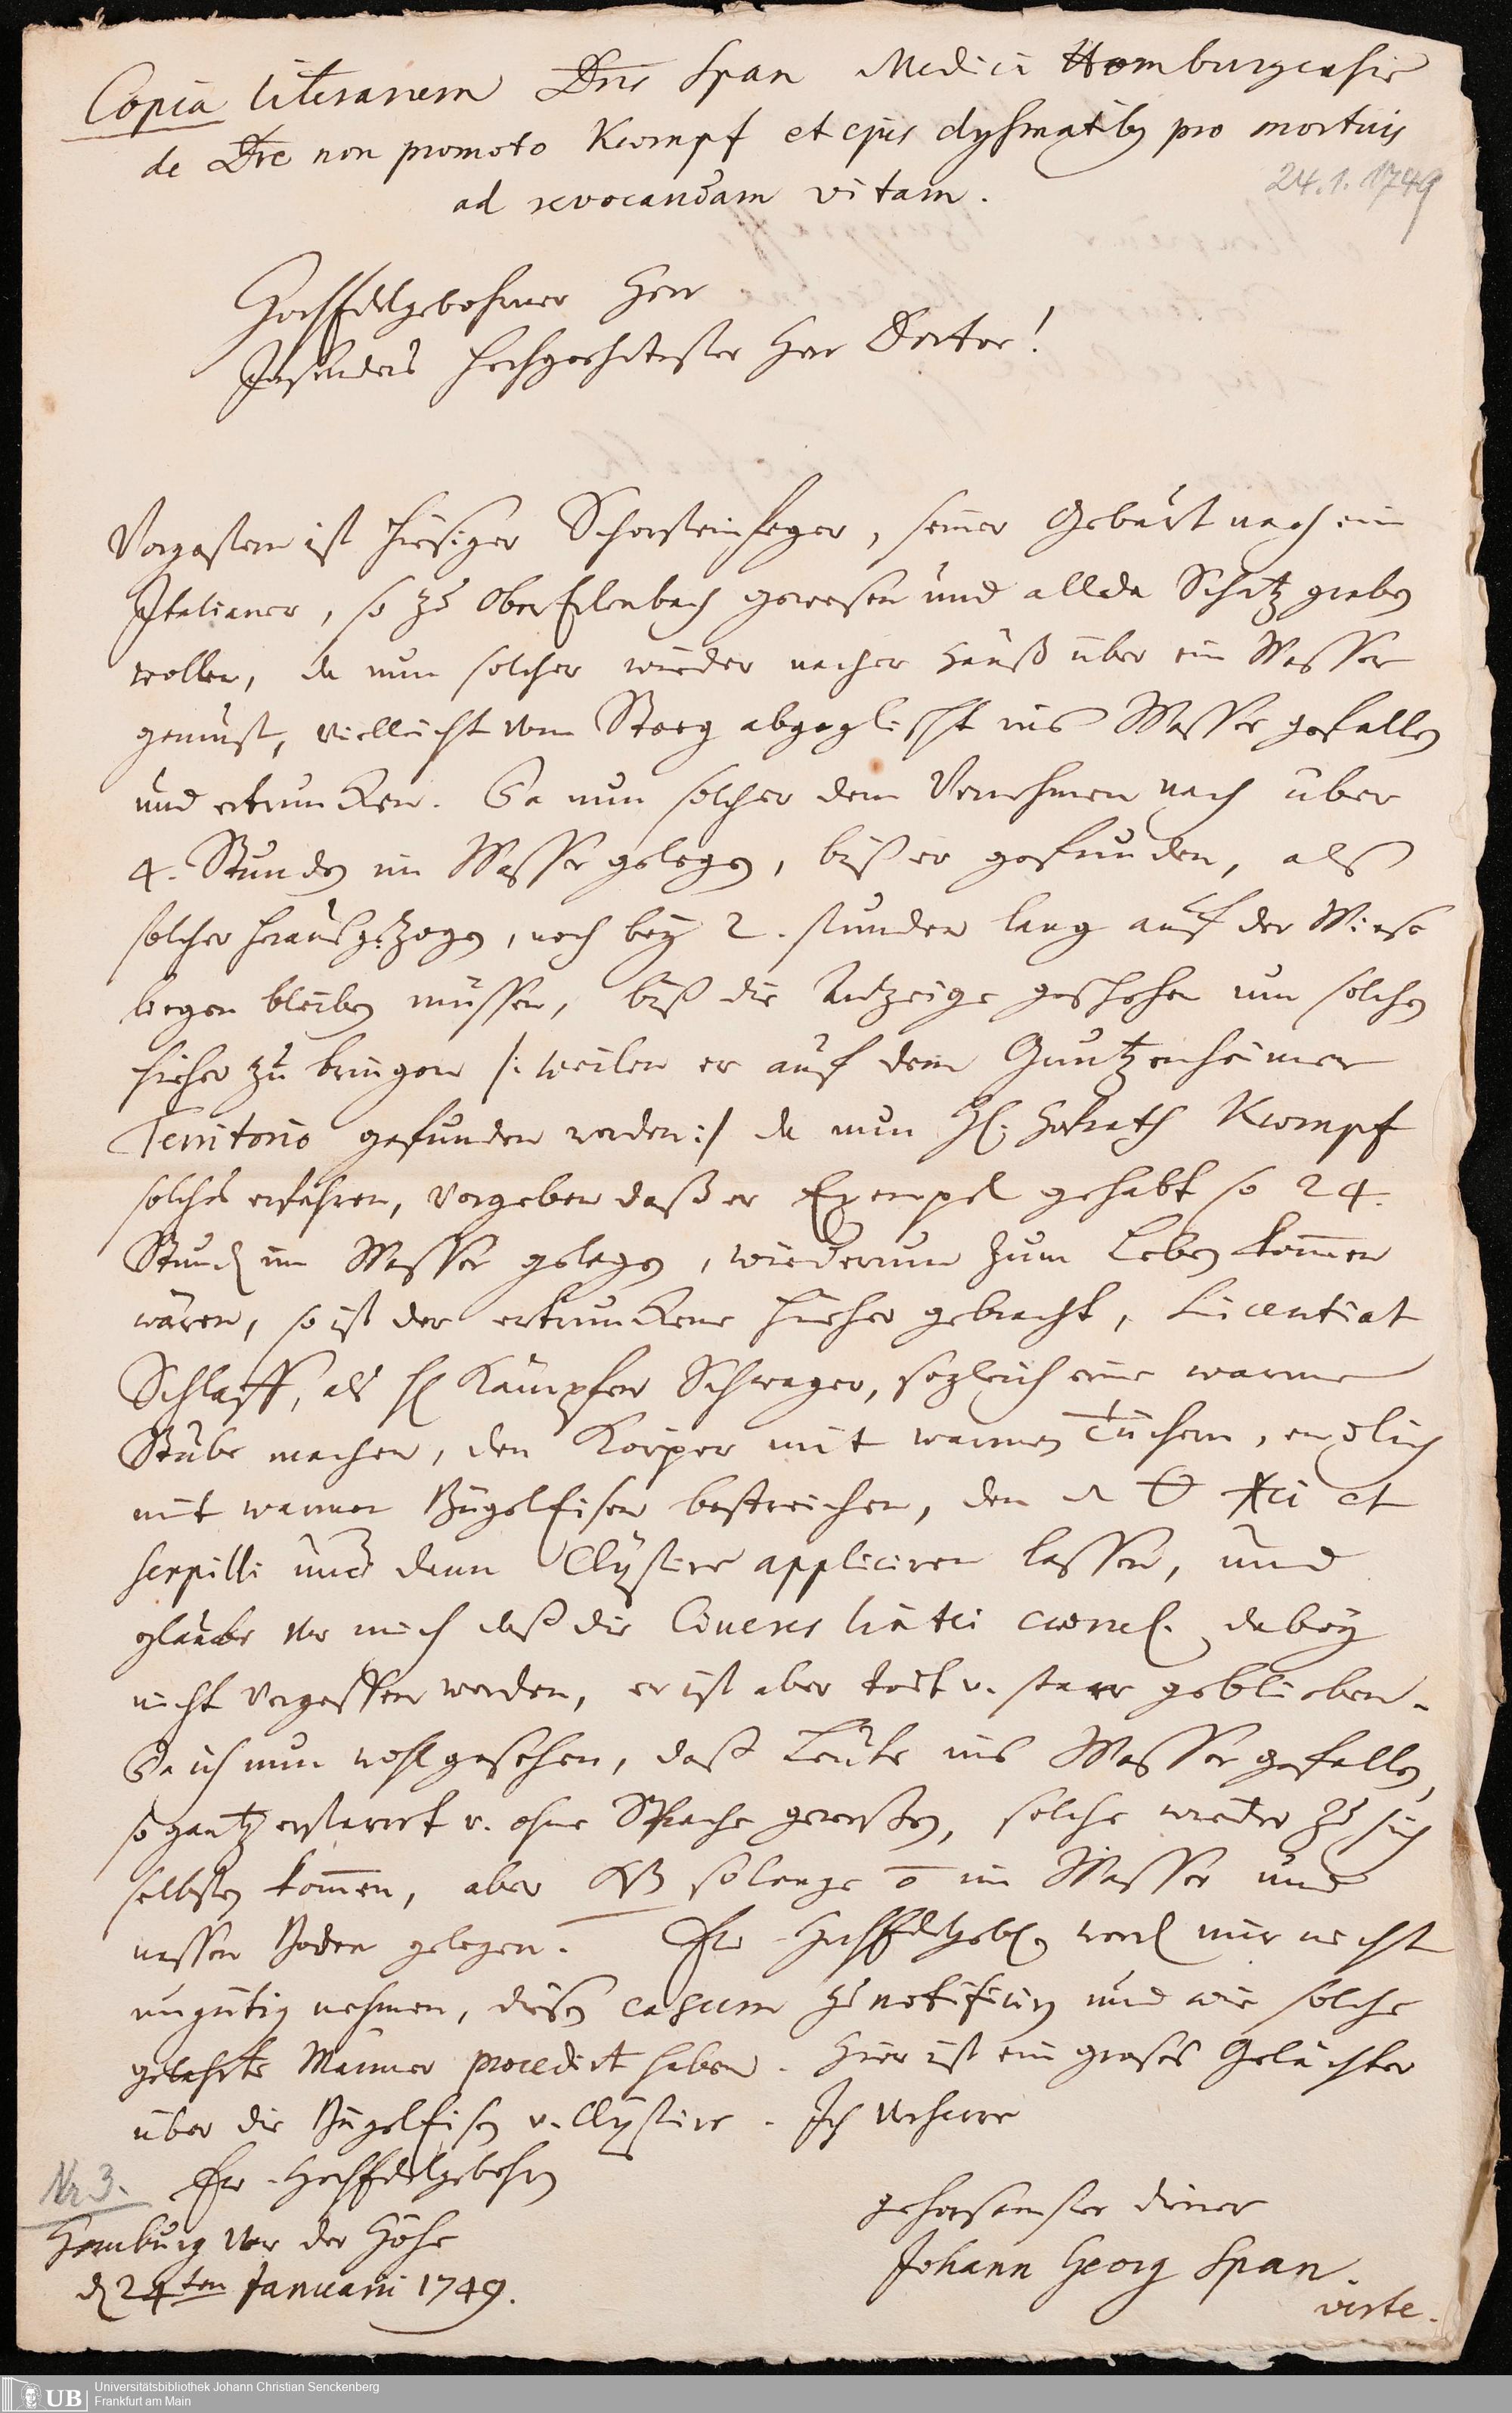 Copia literarum Dni Span Medici Homburgensis
de Dre non promoto Kæmpf et ejus clysmatibus pro mortuis
ad revocandam vitam.
24.1.1749
HochEdelgebohrner Herr
Insonders hochgeehrtester Herr Doctor!
Vorgestern ist hiesiger Schorsteinfeger, seiner Geburt nach ein
Italianer, so zu OberErlenbach gewesen und allda Schätz graben
wollen, da nun solcher wieder nacher Hauß über ein Wasser
gemust, vielleicht vom Steeg abgeglischt ins Wasser gefallen
und ertruncken. Da nun solcher dem Vernehmen nach über
4. Stunden im Wasser gelegen, biß er gefunden, als
solcher heraußgezogen, noch bey 2. stunden lang auf der Wiese
liegen bleiben müssen, biß die Anzeige geschehen um solchen
hieher zu bringen /: weilen er auf dem Guntzenheimer
Territorio gefunden worden :/ da nun H. Hofrath Kæmpf
solches erfahren, vorgeben daß er Exempel gehabt so 24.
Stund im Wasser gelegen, wiederum zum Leben kom̄en
wären, so ist der ertrunckene hieher gebracht, Licentiat
Schlaff, als H Kämpfen Schwager, sogleich eine warme
Stube machen, den Körper mit warmen Tüchern, endlich
mit warmen BügelEisen bestreichen, den et
serpilli und dann Clystire appliciren lassen, und
glaube vor mich daß die Cineres lintei dabey
nicht vergessen worden, er ist aber todt u. starr geblieben.
Da ich nun wohl gesehen, daß Leute ins Wasser gefallen,
so gantz erstarret u. ohne Sprache gewesen, solche wieder zu sich
selbsten kom̄en, aber solange im Wasser und
nassen Boden gelegen. Ew. HochEdelgeb. werd mir nicht
ungütig nehmen, diesen casum zu notificiren und wie solche
gelehrte Männer procedirt haben. Hier ist ein groses Gelächter
über die BügelEisen u. Clystire. Ich verharre
Ew. HochEdelgebohrn
Nr 3.
gehorsamster diener
Homburg vor der Höhe
d 24ten Januarii 1749.
Johann Georg Span.
verte.
UB
Universitätsbibliothek Johann Christian Senckenberg
Frankfurt am Main